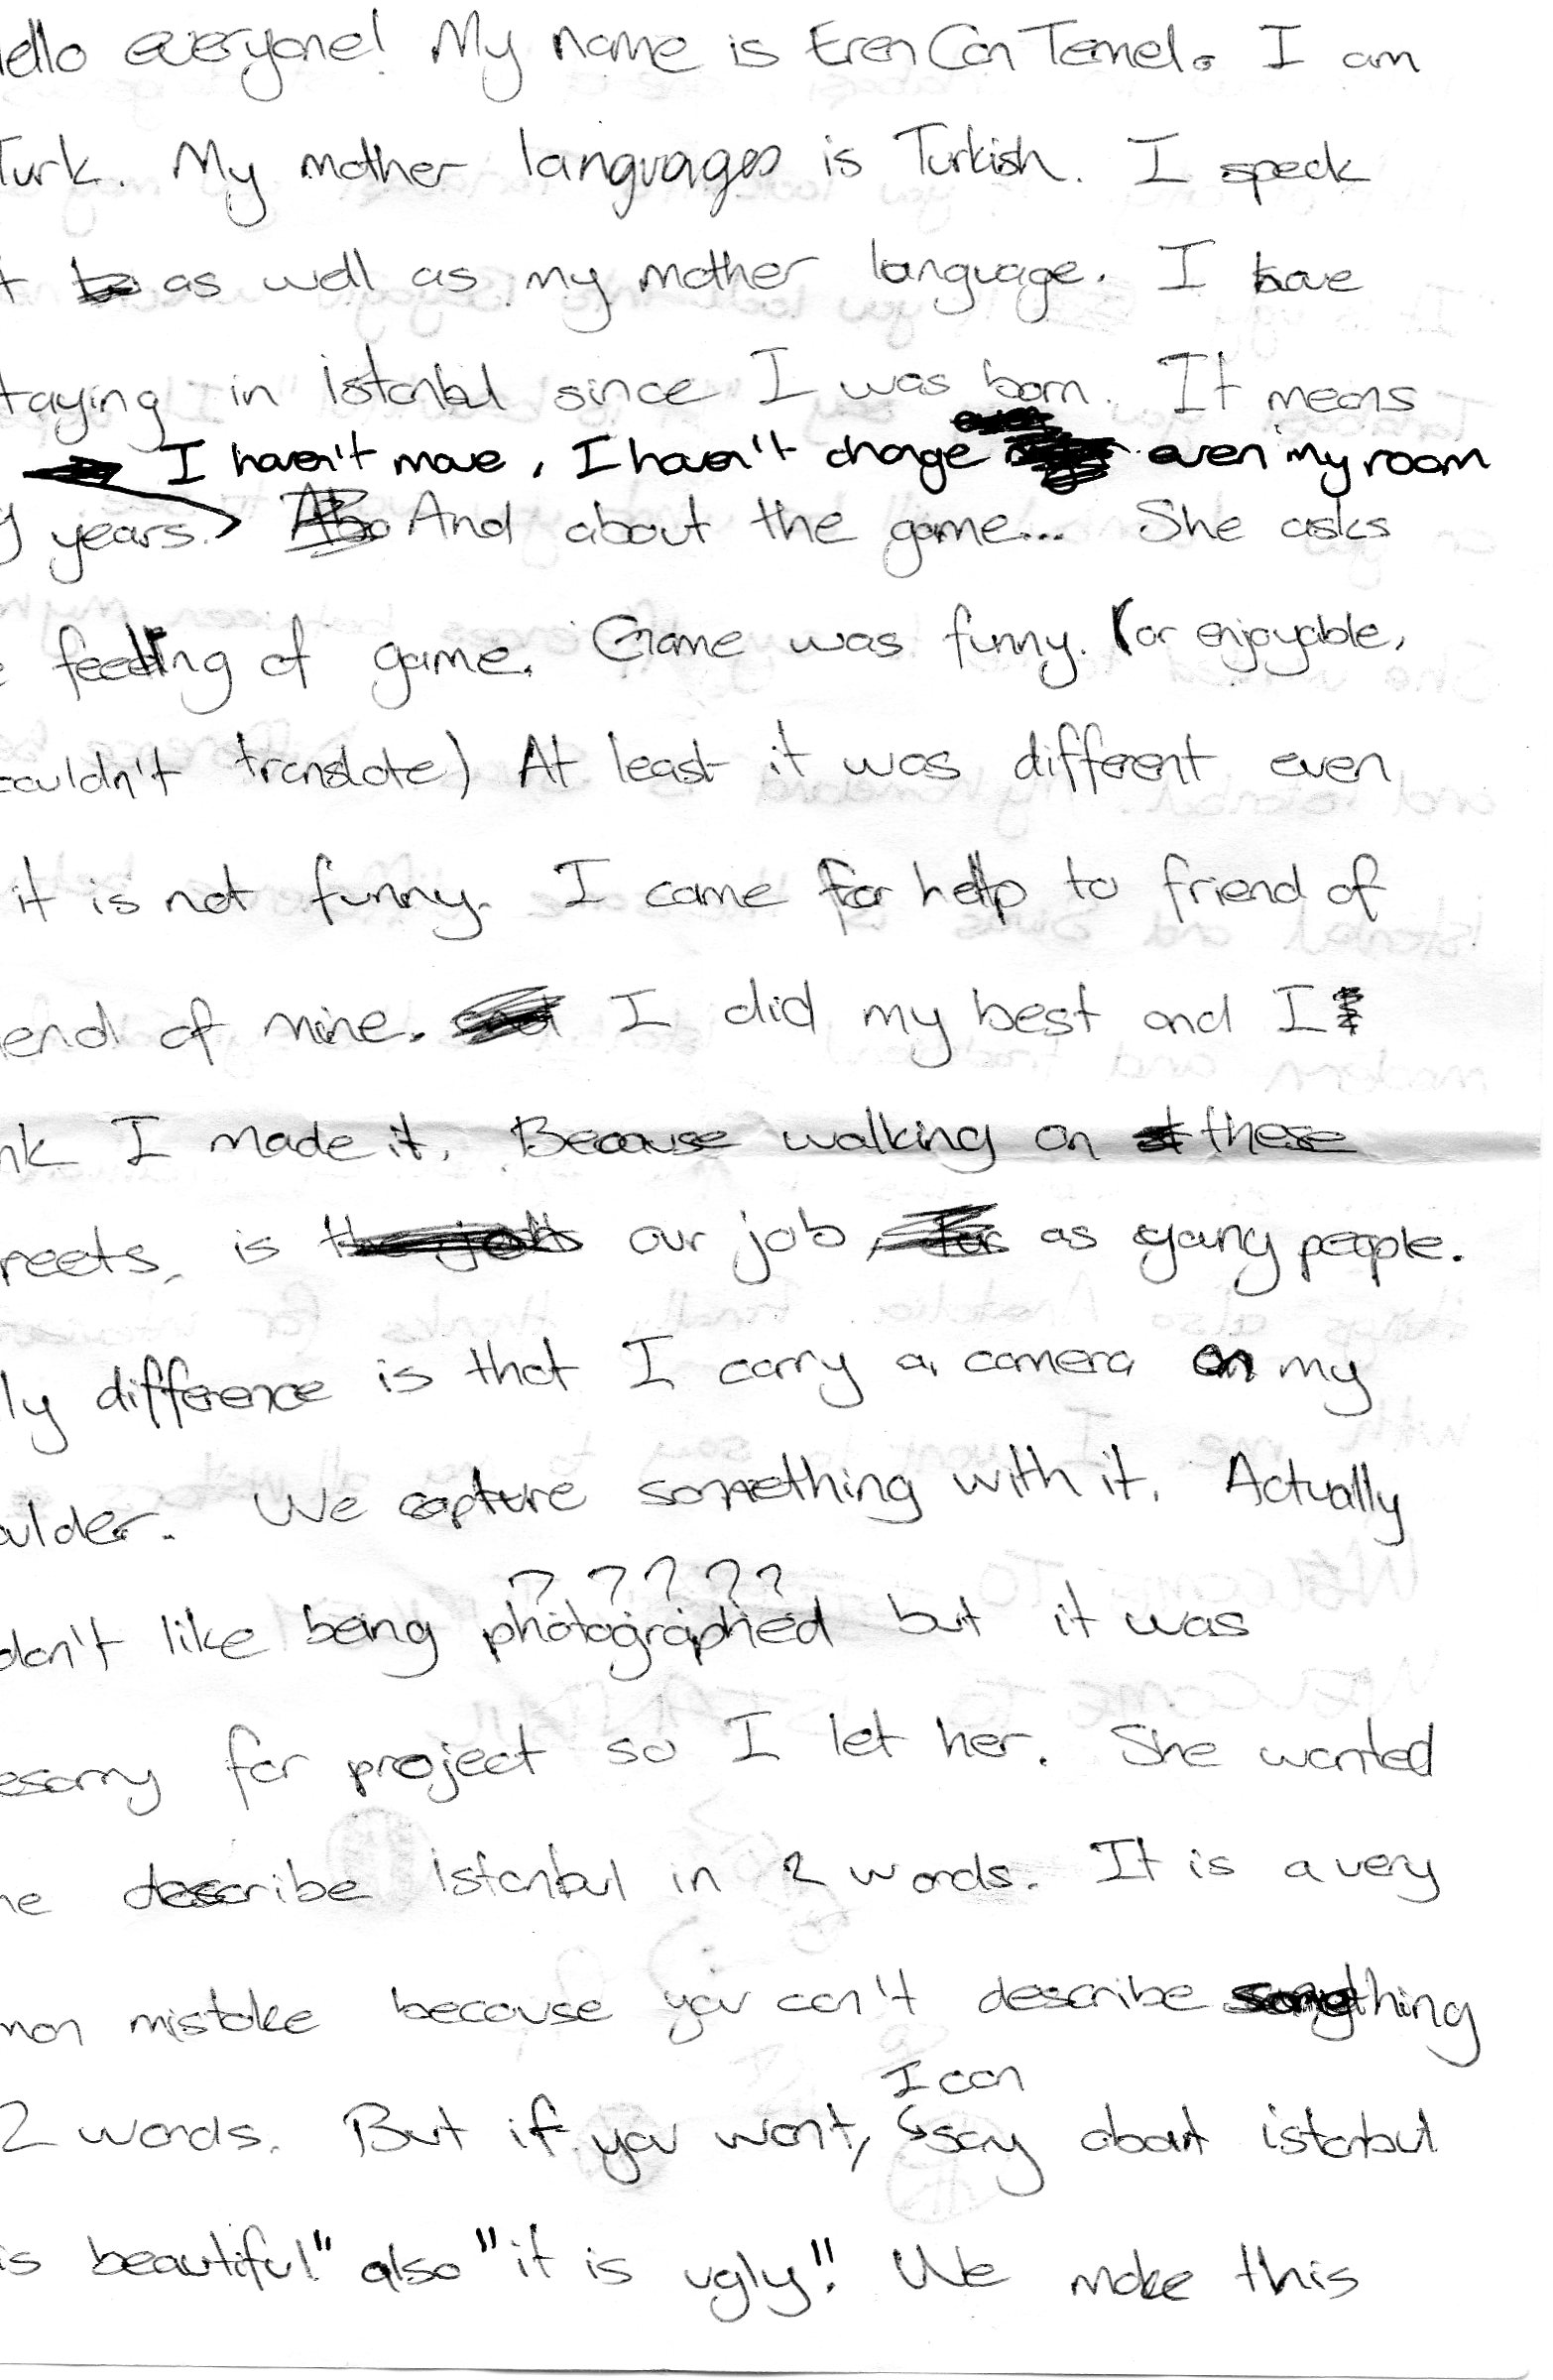 ello everyone! My name is Eren Can Temel. I am
Turk. My mother languages is Turkish. I speak
t as well as my mother language. I have
taying in istanbul since I was born. It means
I haven't move, I haven't change even my room
years. And about the game... She asks
feeling of game. Game was funny. (or enjoyable,
couldn't translate) At least it was different even
it is not funny. I came for help to friend of
end of mine. I did my best and I
nk I made it. Because walking on these
reets, is our job, as young people.
ly difference is that I carry a camera on my
oulder. We capture something with it. Actually
don't like being photographed but it was
? ? ? ? ?
esarry for project so I let her. She wanted
e describe istanbul in 2 words. It is a very
mon mistake because you can't describe something
I can
2 words. But if you want, say about istanbul
is beautiful" also "it is ugly". We make this